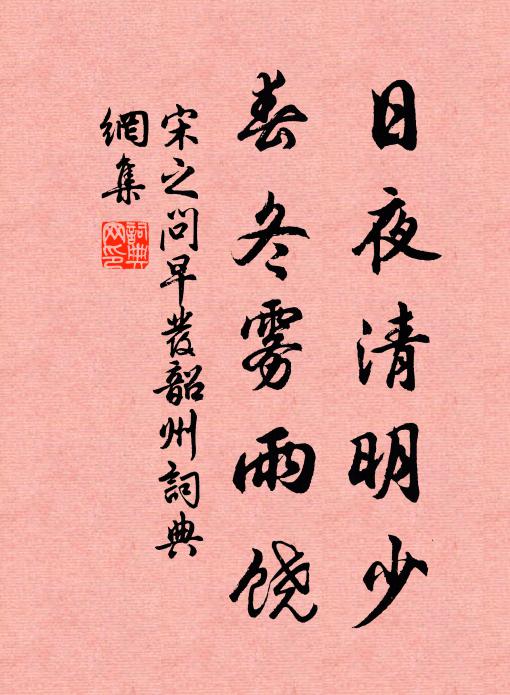 日夜清明少
春冬雾雨饶
宋之问早發韶州詞典
網集
詞典
网印